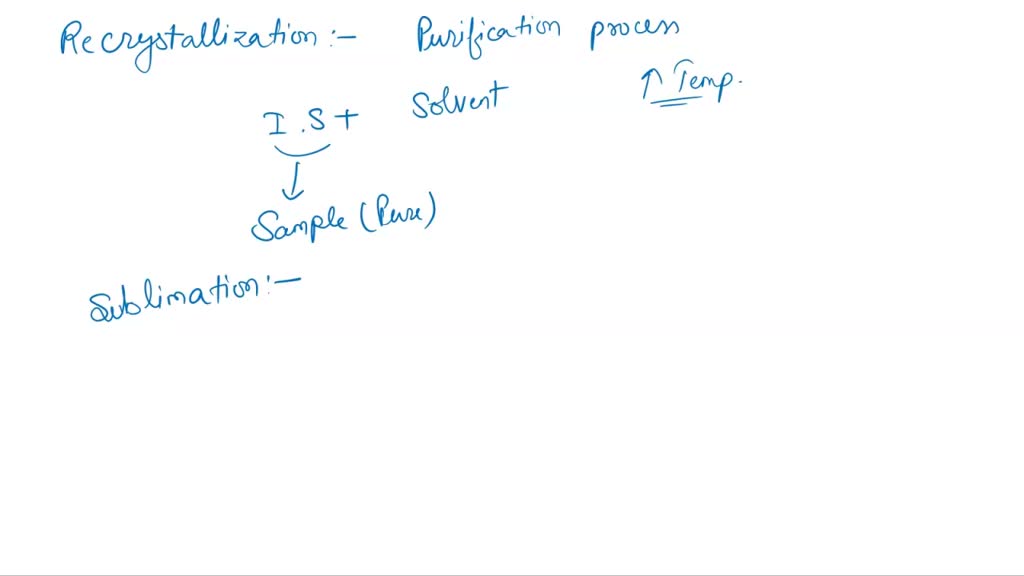 Recrystallization :- Purification process
↑ Temp.
I.S + Solvent
↓
Sample (Pure)
Sublimation :-